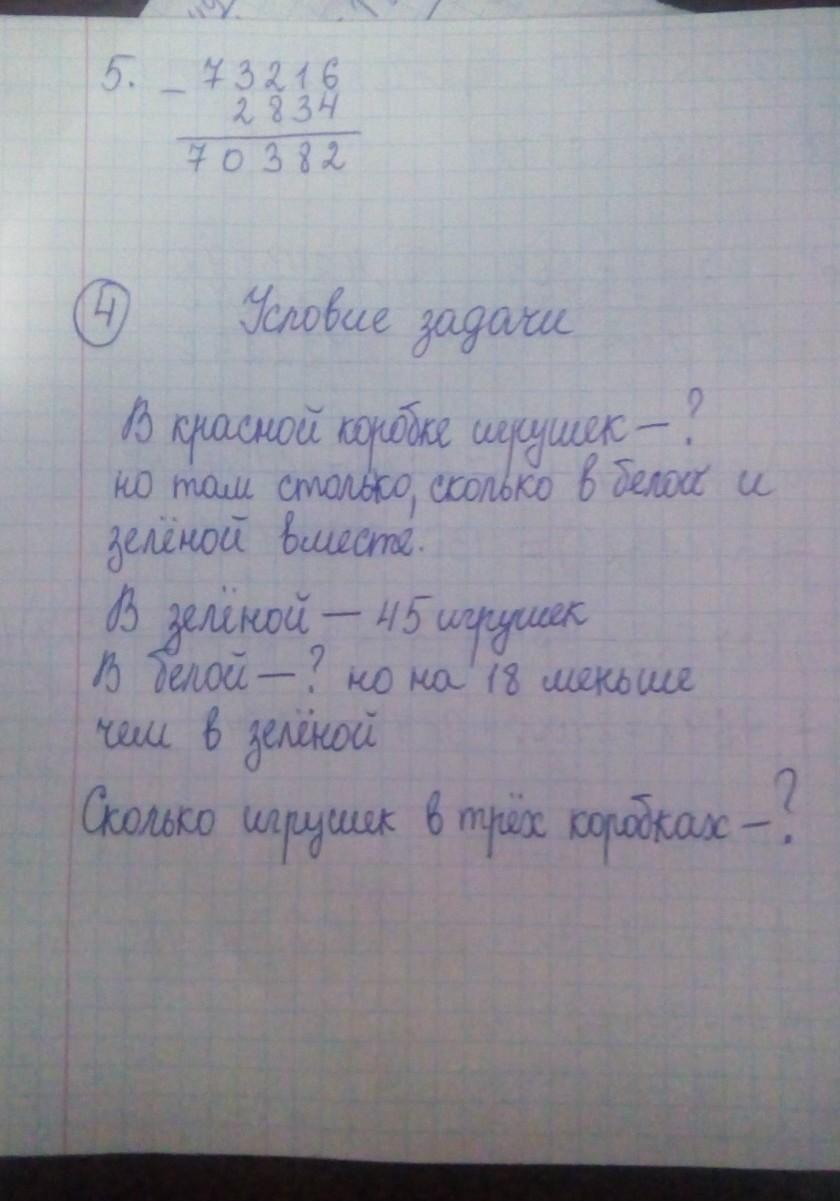 5. - 73216
2834
70382
4 Условие задачи
В красной коробке игрушек — ?
но там столько, сколько в белой и
зелёной вместе.
В зелёной — 45 игрушек
В белой — ? но на 18 меньше
чем в зелёной
Сколько игрушек в трёх коробках — ?